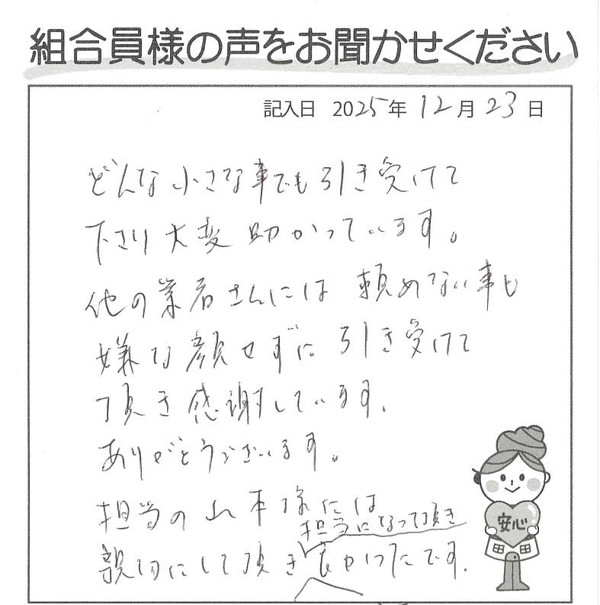 組合員様の声をお聞かせください
記入日 2025年 12月 23日
どんな小さな事でも引き受けて
下さり大変助かっています。
他の業者さんには頼めない事も
嫌な顔せずに引き受けて
頂き感謝しています。
ありがとうございます。
担当の山本様には
担当になって頂き
親切にして頂き良かったです。
安心